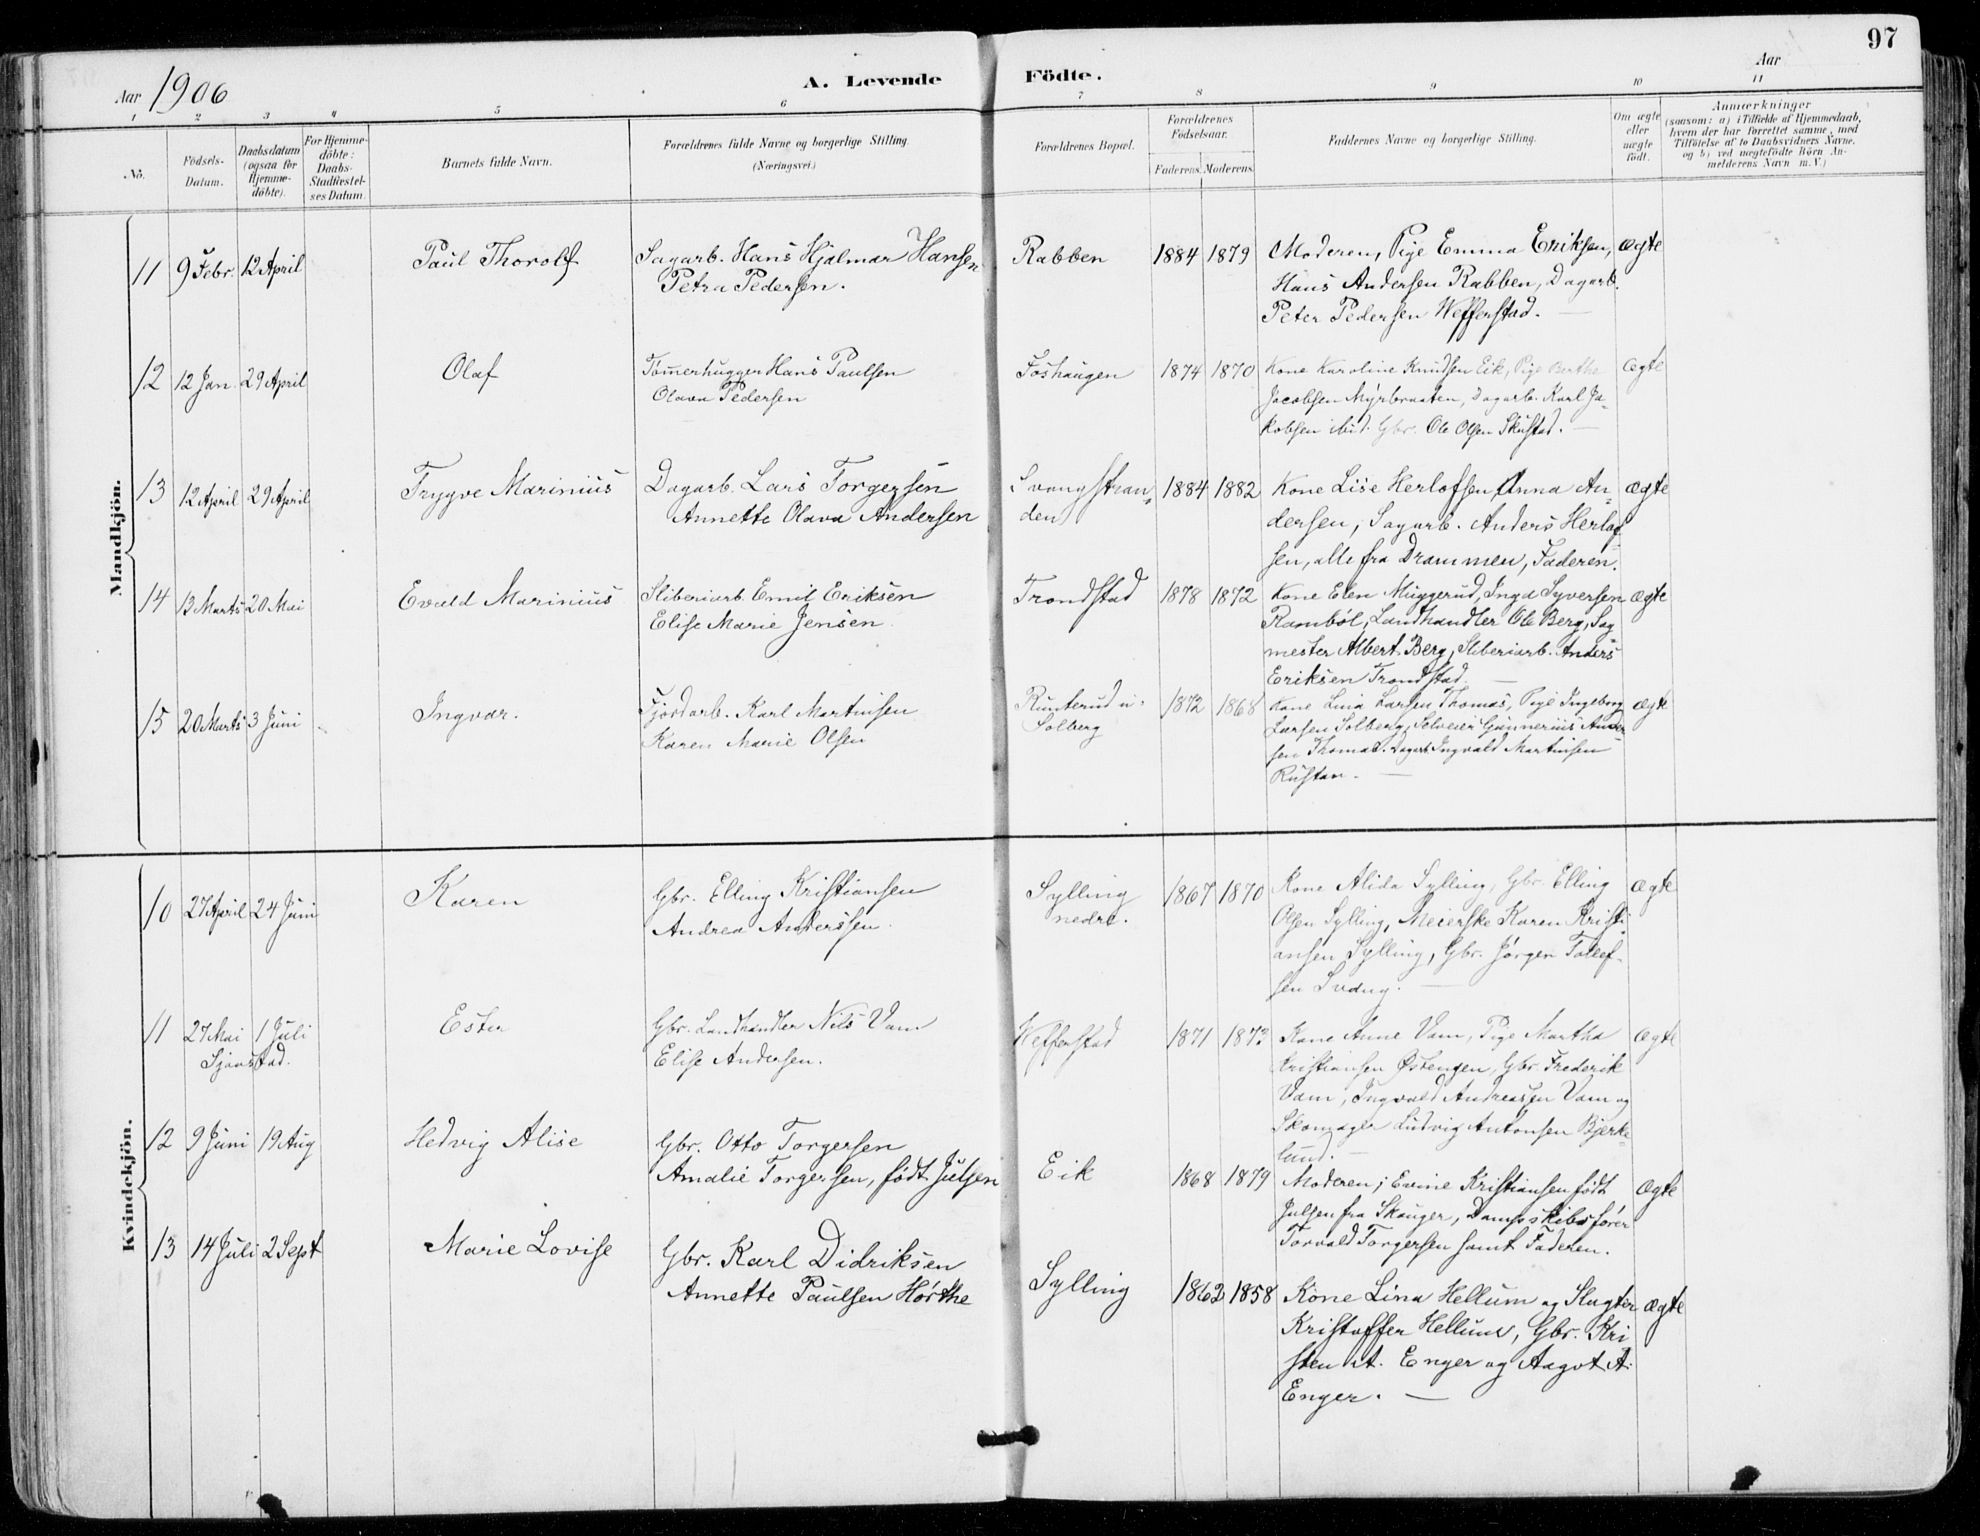 97
Aar 1906
A. Levende Födte.
Aar
1 2 3 4 5 6 7 8 9 10 11
No.
Födsels-
Datum.
Daabsdatum
(ogsaa for
Hjemme-
döbte).
For Hjemme-
döbte:
Daabs-
Stadfæstel-
ses Datum
Barnets fulde Navn.
Forældrenes fulde Navne og borgerlige Stilling
(Næringsvei.)
Forældrenes Bopæl.
Forældrenes
Födselsaar.
Faderens. Moderens.
Faddernes Navne og borgerlige Stilling.
Om ægte
eller
uægte
födt.
Anmærkninger
(saasom: a) i Tilfælde af Hjemmedaab,
hvem der har forrettet samme, med
Tilföielse af to Daabsvidners Navne,
og b) ved uægtefödte Börn An-
melderens Navn m. V.)
Mandkjön.
11 9 Febr. 12 April Paul Thorolf Sagarb. Hans Hjalmar Hansen Rabben 1884 1879 Moderen, Pige Emma Eriksen, ægte
Petra Pedersen. Hans Andersen Rabben, Dagarb.
Peter Pedersen Weffenstad. —
12 12 Jan. 29 April Olaf Tømerhugger Hans Paulsen Foshaugen 1874 1870 Kone Karoline Knudsen Eik, Pige Berthe ægte
Olava Pedersen Jacobsen Myrbraaten, Dagarb. Karl Ja-
kobsen ibid. Gbr. Ole Olsen Skustad. —
13 12 April 29 April Trygve Marinius Dagarb. Lars Torgersen Svangstran- 1884 1882 Kone Lise Herlofsen, Anna An- ægte
Annette Olava Andersen den dersen, Sagarb. Anders Herlof
sen, alle fra Drammen, Faderen.
14 13 Marts 20 Mai Evald Marinius Sliberiarb. Emil Eriksen Trondstad 1878 1872 Kone Elen Muggerud, Inga Syversen ægte
Elise Marie Jensen. Rambøl, Landhandler Ole Berg, Sag
mester Albert Berg, Sliberiarb. Anders
Eriksen Trondstad. —
15 20 Marts 3 Juni Ingvar. Fjordarb. Karl Martinsen Runterud u. 1872 1868 Kone Lina Larsen Thomas, Pige Ingeborg ægte
Karen Marie Olsen Solberg Larsen Solberg, Selveier Gunnerius Ander
sen Thomas. Dagarb Ingvald Martinsen
Rustan. —
Kvindekjön.
10 27 April 24 Juni Karen Gbr. Elling Kristiansen Sylling 1867 1870 Kone Alida Sylling, Gbr. Elling ægte
Andrea Anderssen. nedre. Olsen Sylling, Meierske Karen Kristi
ansen Sylling, Gbr. Jørgen Tollef-
sen
11 27 Mai 1 Juli Ester Gbr. Landhandler Nils Vam Weffenstad 1871 1873 Kone Anne Vam, Pige Martha ægte
Sjaastad. Elise Andersen. Kristiansen Østengen, Gbr. Frederik
Vam, Ingvald Andreassen Vam og
Skomager Ludvig Antonsen Bjerke-
lund. —
12 9 Juni 19 Aug Hedvig Alise Gbr. Otto Torgersen Eik 1868 1879 Moderen, Evine Kristiansen født ægte
Amalie Torgersen, født Julsen Julsen fra Skauger, Dampskibsfører
Torvald Torgersen samt Faderen.
13 14 Juli 2 Sept Marie Lovise Gbr. Karl Didriksen Sylling 1862 1858 Kone Lina Hellum og Slagter ægte
Annette Paulsen Hørthe Kristoffer Hellum, Gbr. Kri
sten A. Enger og Aagot A.
Enger. —